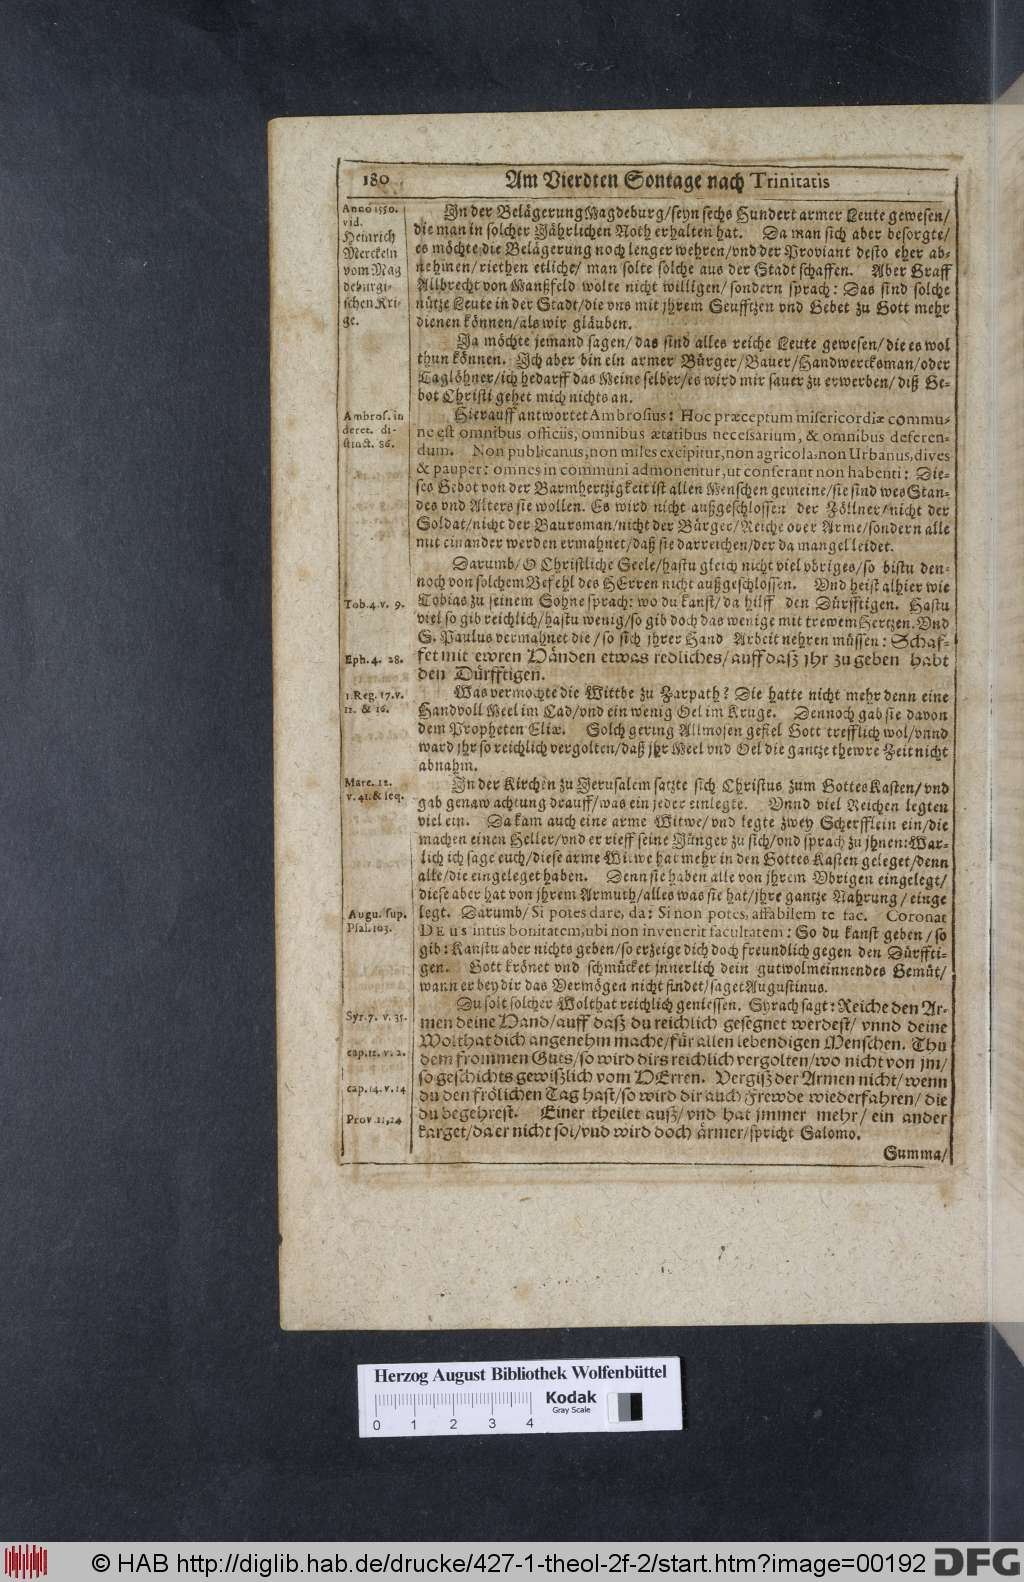 180 Am Vierdten Sontage nach Trinitatis
Anno 1550.
vid.
Heinrich
Merckeln
vom Mag
deburgi-
schen Kri-
ge.
In der Belägerung Magdeburg/seyn sechs Hundert armer Leute gewesen/
die man in solcher Jährlichen Noth erhalten hat. Da man sich aber besorgte/
es möchte die Belägerung noch lenger wehren/vnd der Proviant desto eher ab-
nehmen/riethen etliche/ man solte solche aus der Stadt schaffen. Aber Graff
Allbrecht von Manßfeld wolte nicht willigen/ sondern sprach: Das sind solche
nütze Leute in der Stadt/die vns mit jhrem Seufftzen vnd Gebet zu Gott mehr
dienen können/als wir gläuben.
Ja möchte jemand sagen/ das sind alles reiche Leute gewesen/ die es wol
thun können. Ich aber bin ein armer Bürger/Bauer/Handwercksman/oder
Taglöhner/ich bedarff das Meine selber/es wird mir sauer zu erwerben/ diß Ge-
bot Christi gehet mich nichts an.
Ambros. in
decret. di-
stinct. 86.
Hierauff antwortet Ambrosius: Hoc præceptum misericordiæ commu-
ne est omnibus officiis, omnibus ætatibus necessarium, & omnibus deferen-
dum. Non publicanus, non miles excipitur, non agricola, non Urbanus, dives
& pauper: omnes in communi admonentur, ut conferant non habenti: Die-
ses Gebot von der Barmhertzigkeit ist allen Menschen gemeine/sie sind wes Stan-
des vnd Alters sie wollen. Es wird nicht außgeschlossen der Zöllner/nicht der
Soldat/nicht der Baursman/nicht der Bürger/Reiche oder Arme/sondern alle
mit einander werden ermahnet/daß sie darreichen/der da mangel leidet.
Darumb/O Christliche Seele/hastu gleich nicht viel vbriges/so bistu den-
noch von solchem Befehl des HErren nicht außgeschlossen. Vnd heist alhier wie
Tob. 4. v. 9.
Tobias zu seinem Sohne sprach: wo du kanst/da hilff den Dürfftigen. Hastu
viel so gib reichlich/hastu wenig/so gib doch das wenige mit trewem Hertzen. Vnd
S. Paulus vermahnet die/so sich jhrer Hand Arbeit nehren müssen: Schaf-
Eph. 4. 28.
fet mit ewren Händen etwas redliches/auff daß jhr zu geben habt
den Dürfftigen.
1. Reg. 17. v.
12. & 16.
Was vermochte die Wittbe zu Zarpath? Die hatte nicht mehr denn eine
Handvoll Meel im Cad/vnd ein wenig Oel im Kruge. Dennoch gab sie davon
dem Propheten Eliæ. Solch gering Allmosen gefiel Gott trefflich wol/vnnd
ward jhr so reichlich vergolten/daß jhr Meel vnd Oel die gantze thewre Zeit nicht
abnahm.
Marc. 12.
v. 41. & seq.
In der Kirchen zu Jerusalem satzte sich Christus zum Gottes Kasten/ vnd
gab genaw achtung drauff/was ein jeder einlegte. Vnnd viel Reichen legten
viel ein. Da kam auch eine arme Witwe/ vnd legte zwey Scherfflein ein/die
machen einen Heller/vnd er rieff seine Jünger zu sich/vnd sprach zu jhnen: War-
lich ich sage euch/diese arme Witwe hat mehr in den Gottes Kasten geleget/denn
alle/die eingeleget haben. Denn sie haben alle von jhrem Vbrigen eingelegt/
diese aber hat von jhrem Armuth/alles was sie hat/jhre gantze Nahrung/ einge
Augu. sup.
Psal. 103.
legt. Darumb/ Si potes dare, da: Si non potes, affabilem te fac. Coronat
DEus intus bonitatem, ubi non invenerit facultatem: So du kanst geben/so
gib: Kanstu aber nichts geben/so erzeige dich doch freundlich gegen den Dürffti-
gen. Gott krönet vnd schmücket jnnerlich dein gutwolmeinnendes Gemüt/
wann er bey dir das Vermögen nicht findet/saget Augustinus.
Du solt solcher Wolthat reichlich geniessen. Syrach sagt: Reiche den Ar-
Syr. 7. v. 35.
men deine Hand/auff daß du reichlich gesegnet werdest/ vnnd deine
Wolthat dich angenehm mache/für allen lebendigen Menschen. Thu
cap. 12. v. 2.
dem frommen Guts/so wird dirs reichlich vergolten/wo nicht von jm/
so geschichts gewißlich vom HErren. Vergiß der Armen nicht/wenn
cap. 14. v. 14
du den frölichen Tag hast/so wird dir auch Frewde wiederfahren/ die
du begehrest. Einer theilet auß/ vnd hat jmmer mehr/ ein ander
Prov. 11, 24
karget/da er nicht sol/vnd wird doch ärmer/spricht Salomo.
Summa/
Herzog August Bibliothek Wolfenbüttel
0 1 2 3 4
Kodak
Gray Scale
© HAB http://diglib.hab.de/drucke/427-1-theol-2f-2/start.htm?image=00192 DFG